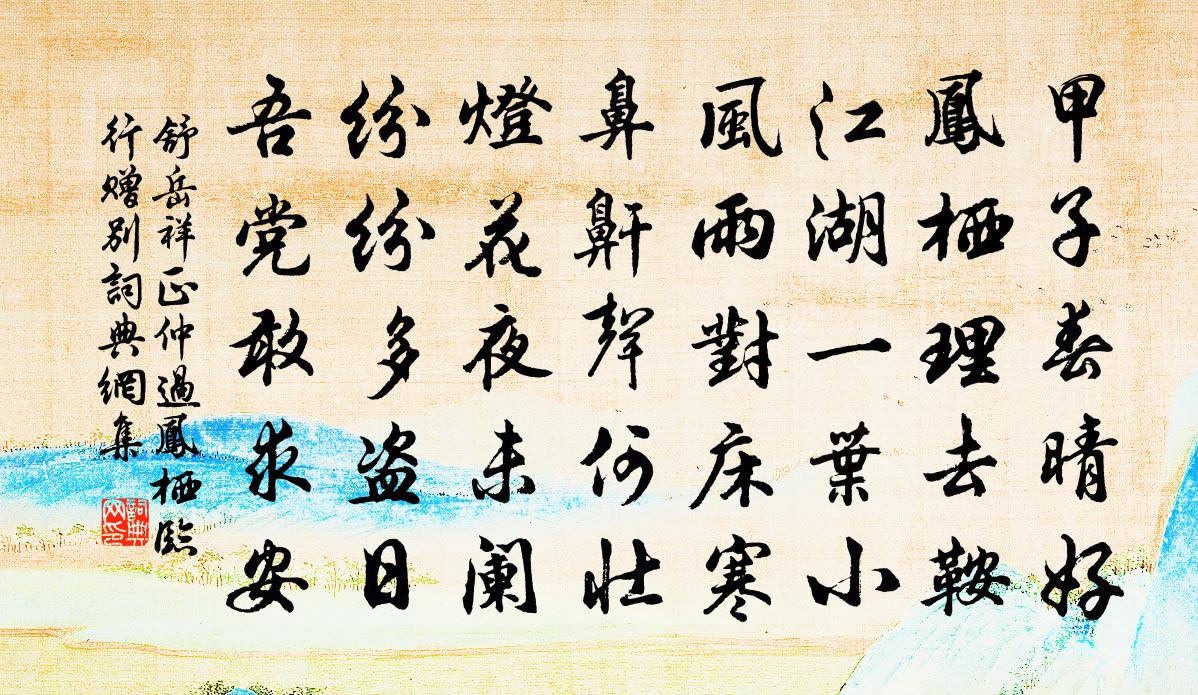 甲子春晴好
鳳栖理去鞍
江湖一葉小
風雨對床寒
鼻鼾聲何壯
燈花夜未阑
纷纷多盗日
吾党敢求安
舒岳祥正仲過鳳栖臨
行赠别詞典網集